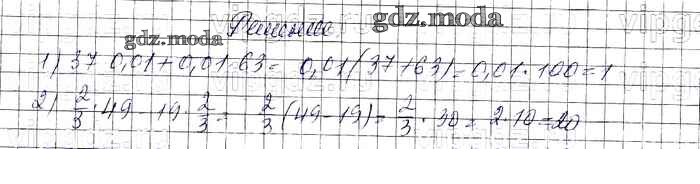 Решение gdz.moda
gdz.moda
1) 37 0,01 + 0,01 · 63 = 0,01(37+63) = 0,01 · 100 = 1
2) 2/3 · 49 - 19 · 2/3 = 2/3 (49 - 19) = 2/3 · 30 = 2 · 10 = 20